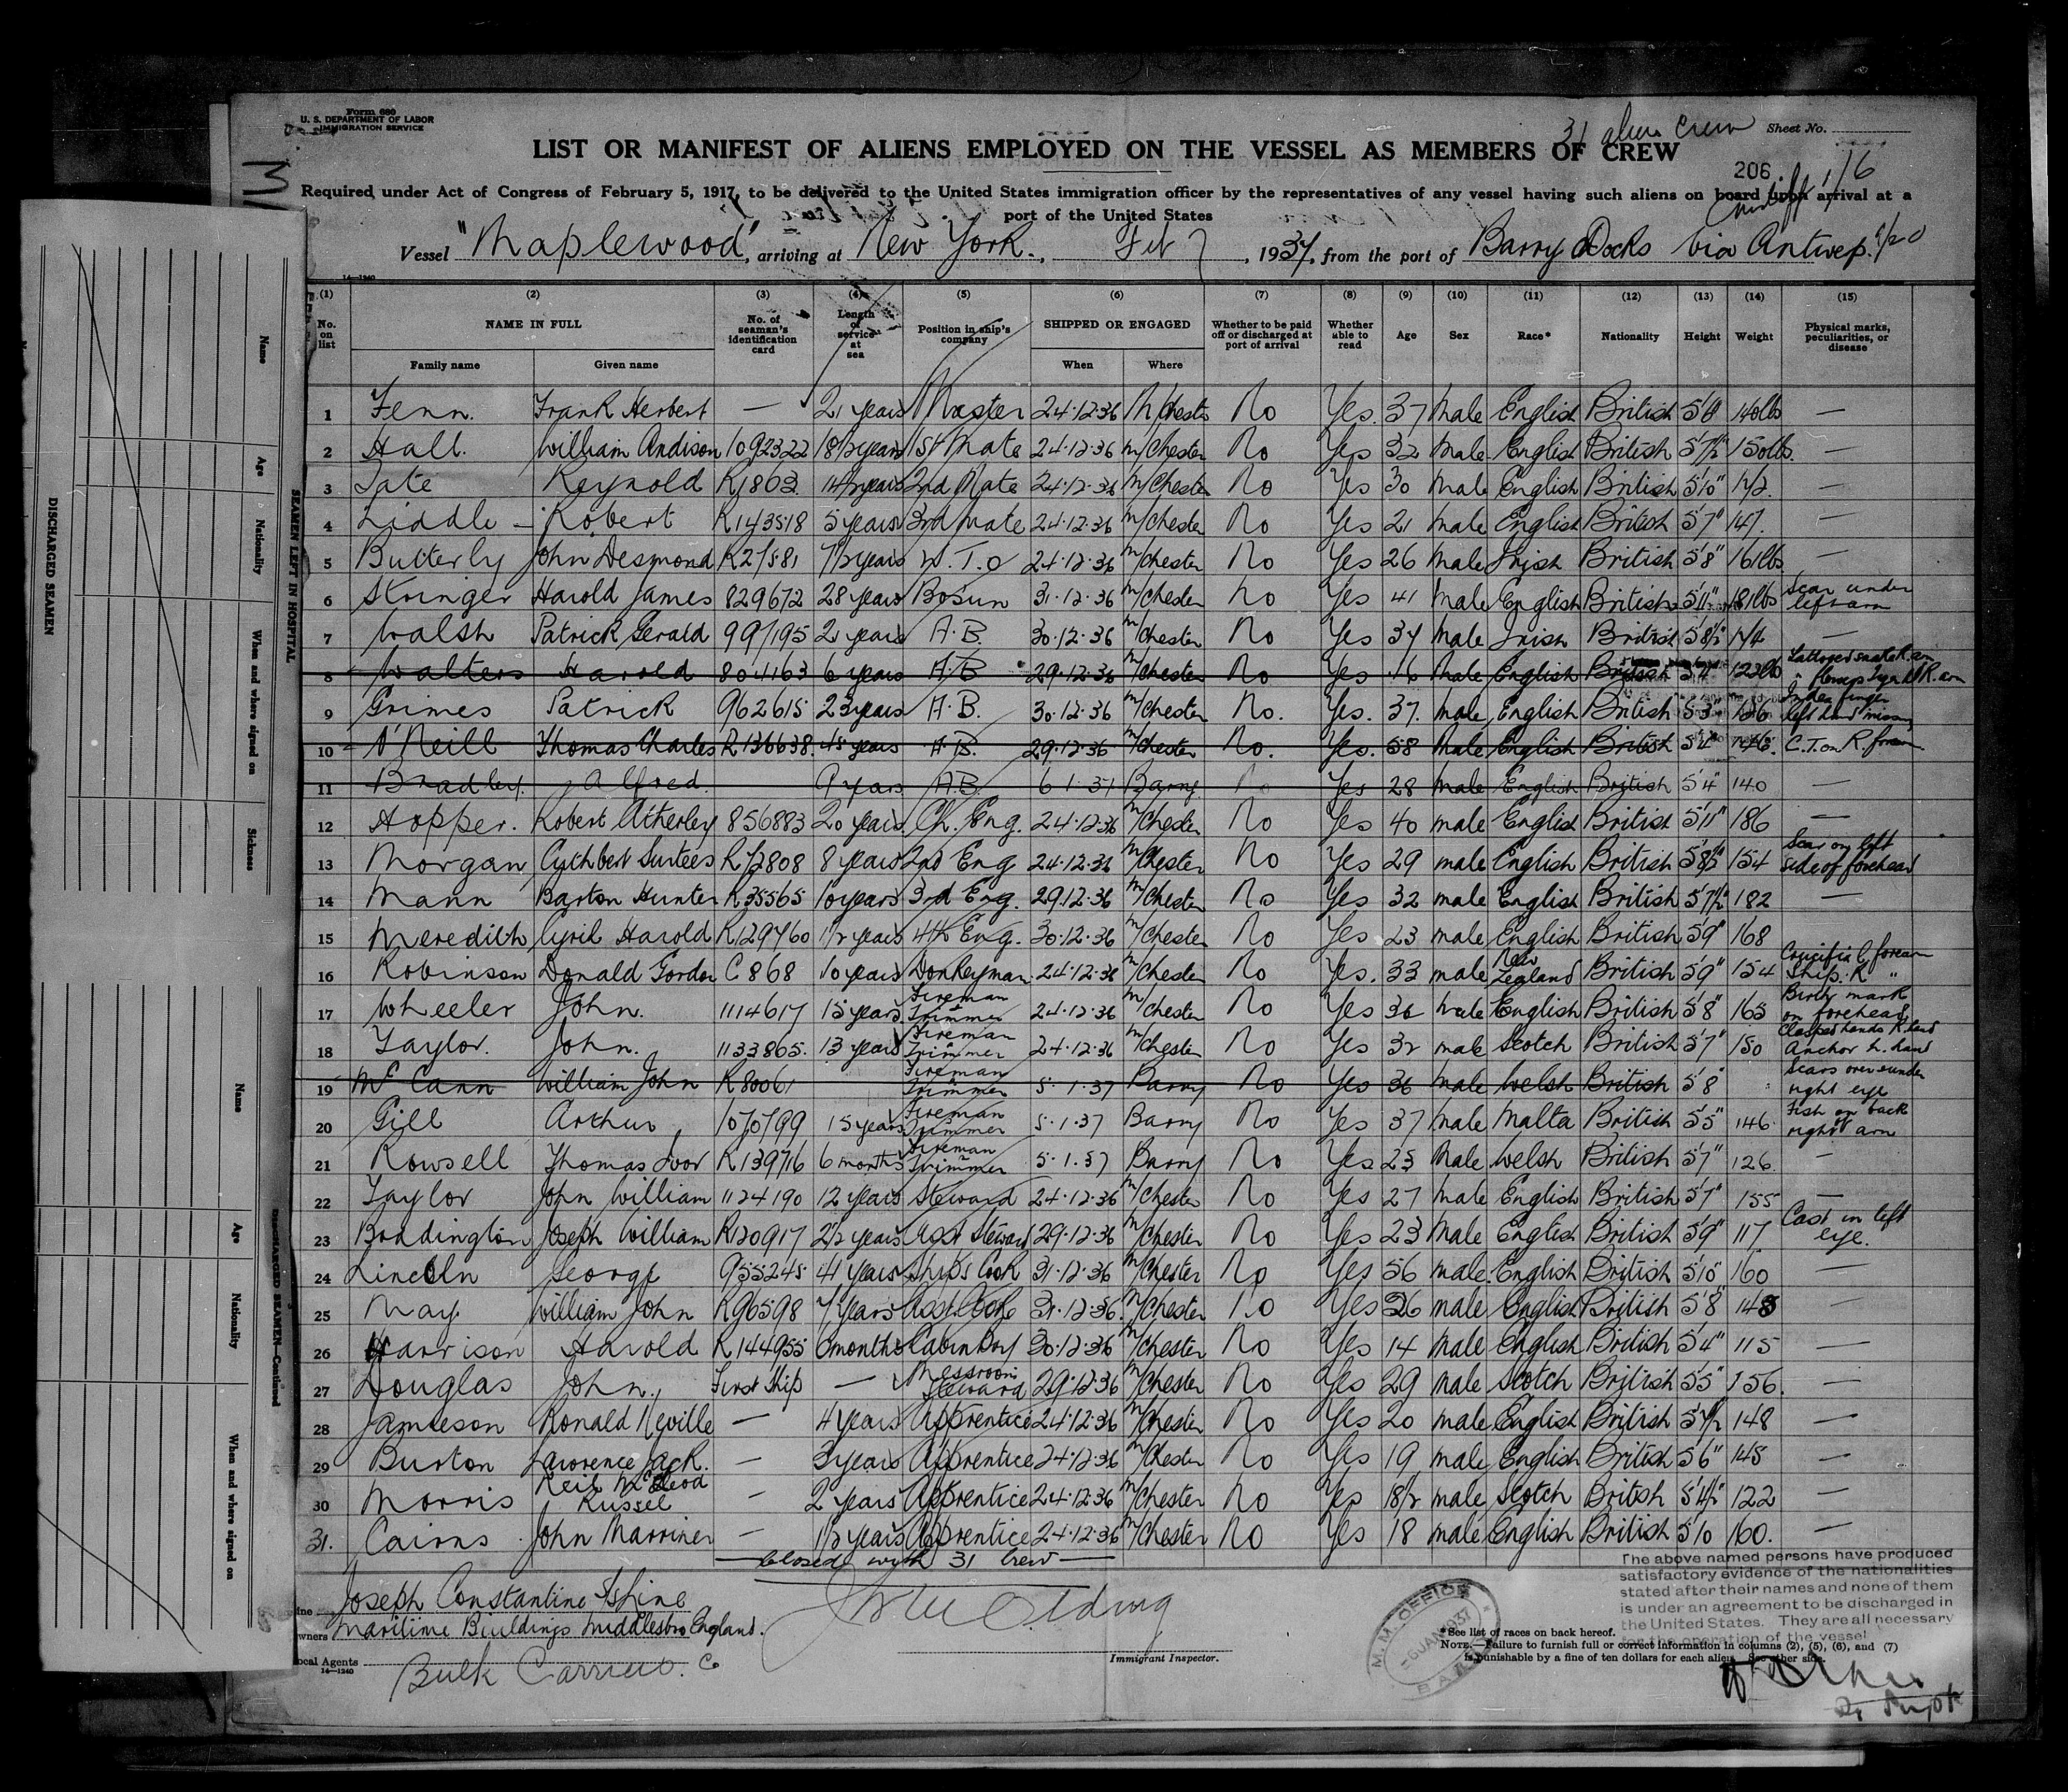 Form 680
U. S. DEPARTMENT OF LABOR
IMMIGRATION SERVICE
31 alien crew
Sheet No.
LIST OR MANIFEST OF ALIENS EMPLOYED ON THE VESSEL AS MEMBERS OF CREW
206
176
Required under Act of Congress of February 5, 1917, to be delivered to the United States immigration officer by the representatives of any vessel having such aliens on board upon arrival at a
port of the United States
Cardiff
Vessel "Maplewood", arriving at New York., Feb 7, 1937, from the port of Barry Docks via Antwerp.
14—1240
(1) (2) (3) (4) (5) (6) (7) (8) (9) (10) (11) (12) (13) (14) (15)
No. on list NAME IN FULL No. of seaman's identification card Length of service at sea Position in ship's company SHIPPED OR ENGAGED Whether to be paid off or discharged at port of arrival Whether able to read Age Sex Race* Nationality Height Weight Physical marks, peculiarities, or disease
Family name Given name When Where
1 Fenn. Frank Herbert — 21 years Master 24.12.36 M/Chester No Yes. 37 Male English British 140lbs —
2 Hall. William Andison 1092322 18½ years 1st Mate 24.12.36 M/Chester No Yes 32 Male English British 5'7½" 150lbs. —
3 Tate Reynold R1863 14½ years 2nd Mate 24.12.36 M/Chester No Yes 30 Male English British 5'10" 172. —
4 Liddle Robert R143518 5 years 3rd Mate 24.12.36 M/Chester No Yes 21 Male English British 5'7" 147. —
5 Butterly John Desmond 7½ years W.T.O 24.12.36 M/Chester No Yes 26 Male Irish British 5'8" 161lbs —
6 Stringer Harold James 829672 28 years Bosun 31.12.36 M/Chester No Yes 41 Male English British 5'11" 181lbs Scar under left arm
7 Walsh Patrick Gerald 997195 2 years A.B. 30.12.36 M/Chester No Yes 37 Male Irish British 5'8½" 174 —
8 Walters Harold 804163 6 years A.B 29.12.36 M/Chester No Yes Male English British 5'4" 123lbs Tattooed snake R. arm
9 Grimes Patrick 962615 23 years A.B. 30.12.36 M/Chester No. Yes. 37. Male English British 5'3" 136 Index finger left hand missing
10 O'Neill Thomas Charles R136638. 45 years A.B. 29.12.36 M/Chester No. Yes. 58 Male English British 5'4" 146. C.T. on R. forearm
11 Bradley. Alfred. 9 years A.B. 6.1.37 Barry. No Yes 28 Male English British 5'4" 140 —
12 Hopper. Robert Atherley 856883 20 years Ch. Eng. 24.12.36 M/Chester No Yes 40 male English British 5'11" 186 —
13 Morgan Cuthbert Surtees R72808 8 years 2nd Eng 24.12.36 M/Chester No Yes 29 male English British 5'8½" 154 Scar on left side of forehead
14 Mann Barton Hunter R35565 10 years 3rd Eng. 29.12.36 M/Chester No Yes 32 male English British 5'7½" 182 —
15 Meredith, Cyril Harold R129760 1½ years 4th Eng. 30.12.36 M/Chester No Yes 23 male English British 5'9" 168
16 Robinson Donald Gordon C868 10 years Donkeyman 24.12.36 M/Chester No Yes. 33 male New Zealand British 5'9" 154 Crucifix L forearm Ship. R "
17 Wheeler John. 1114617 15 years Fireman Trimmer 24.12.36 M/Chester No Yes 36 male English British 5'8" 165 Birth mark on forehead
18 Taylor. John. 1133865. 13 years Fireman Trimmer 24.12.36 M/Chester No Yes 32 male Scotch British 5'7" 150 Clasped hands R. hand Anchor L. hand
19 McCann William John R80061 Fireman Trimmer 5.1.37 Barry No Yes 36 Male Welsh British 5'8" Scars over & under right eye
20 Gill Arthur 1070799 15 years Fireman Trimmer 5.1.37 Barry No Yes 37 Male Malta British 5'5" 146. Fish on back of right arm
21 Rowsell Thomas Ivor R139716 6 months Fireman Trimmer 5.1.37 Barry No Yes 25 Male Welsh British 5'7" 126. —
22 Taylor John William 1124190 12 years Steward 24.12.36 M/Chester No Yes 27 Male English British 5'7" 155 —
23 Boddington Joseph William R120917 2½ years Asst Steward 29.12.36 M/Chester No Yes 23 Male English British 5'9" 117 Cast in left eye.
24 Lincoln George 955245 41 years Ships Cook 31.12.36 M/Chester No Yes 56 male. English British 5'10" 160 —
25 May. William John R96598 7 years Asst Cook 31.12.36. M/Chester No Yes 26 male English British 5'8" 148 —
26 Harrison Harold R144955 6 months Cabin Boy 30.12.36 M/Chester No Yes 14 Male English British 5'4" 115 —
27 Douglas John. First Ship — Messroom Steward 29.12.36 M/Chester No Yes 29 Male Scotch British 5'5" 156. —
28 Jamieson Ronald Neville — 4 years Apprentice 24.12.36 M/Chester No Yes 20 male English British 148 —
29 Burton Lawrence Jack. — 3 years Apprentice 24.12.36 M/Chester No Yes 19 male English British 5'6" 145 —
30 Morris Neil McLeod Russel — 2 years Apprentice 24.12.36 M/Chester No Yes 18½ male Scotch British 5'4½" 122 —
31. Cairns John Marriner — 1½ years Apprentice 24.12.36 M/Chester No Yes 18 male English British 5'10 160. —
— Closed with 31 Crew —
The above named persons have produced
satisfactory evidence of the nationalities
stated after their names and none of them
is under an agreement to be discharged in
the United States. They are all necessary
for the operation of the vessel
Joseph Constantine S/S Line
Owners Maritime Buildings Middlesbro England.
Local Agents Bulk Carriers. Co
14—1240
Immigrant Inspector.
M.M. OFFICE
6 JAN 1937
*See list of races on back hereof.
NOTE.—Failure to furnish full or correct information in columns (2), (5), (6), and (7)
is punishable by a fine of ten dollars for each alien. See other side.
Supt
DISCHARGED SEAMEN
SEAMEN LEFT IN HOSPITAL
Name Age Nationality When and where signed on Sickness
DISCHARGED SEAMEN—Continued
Name Age Nationality When and where signed on